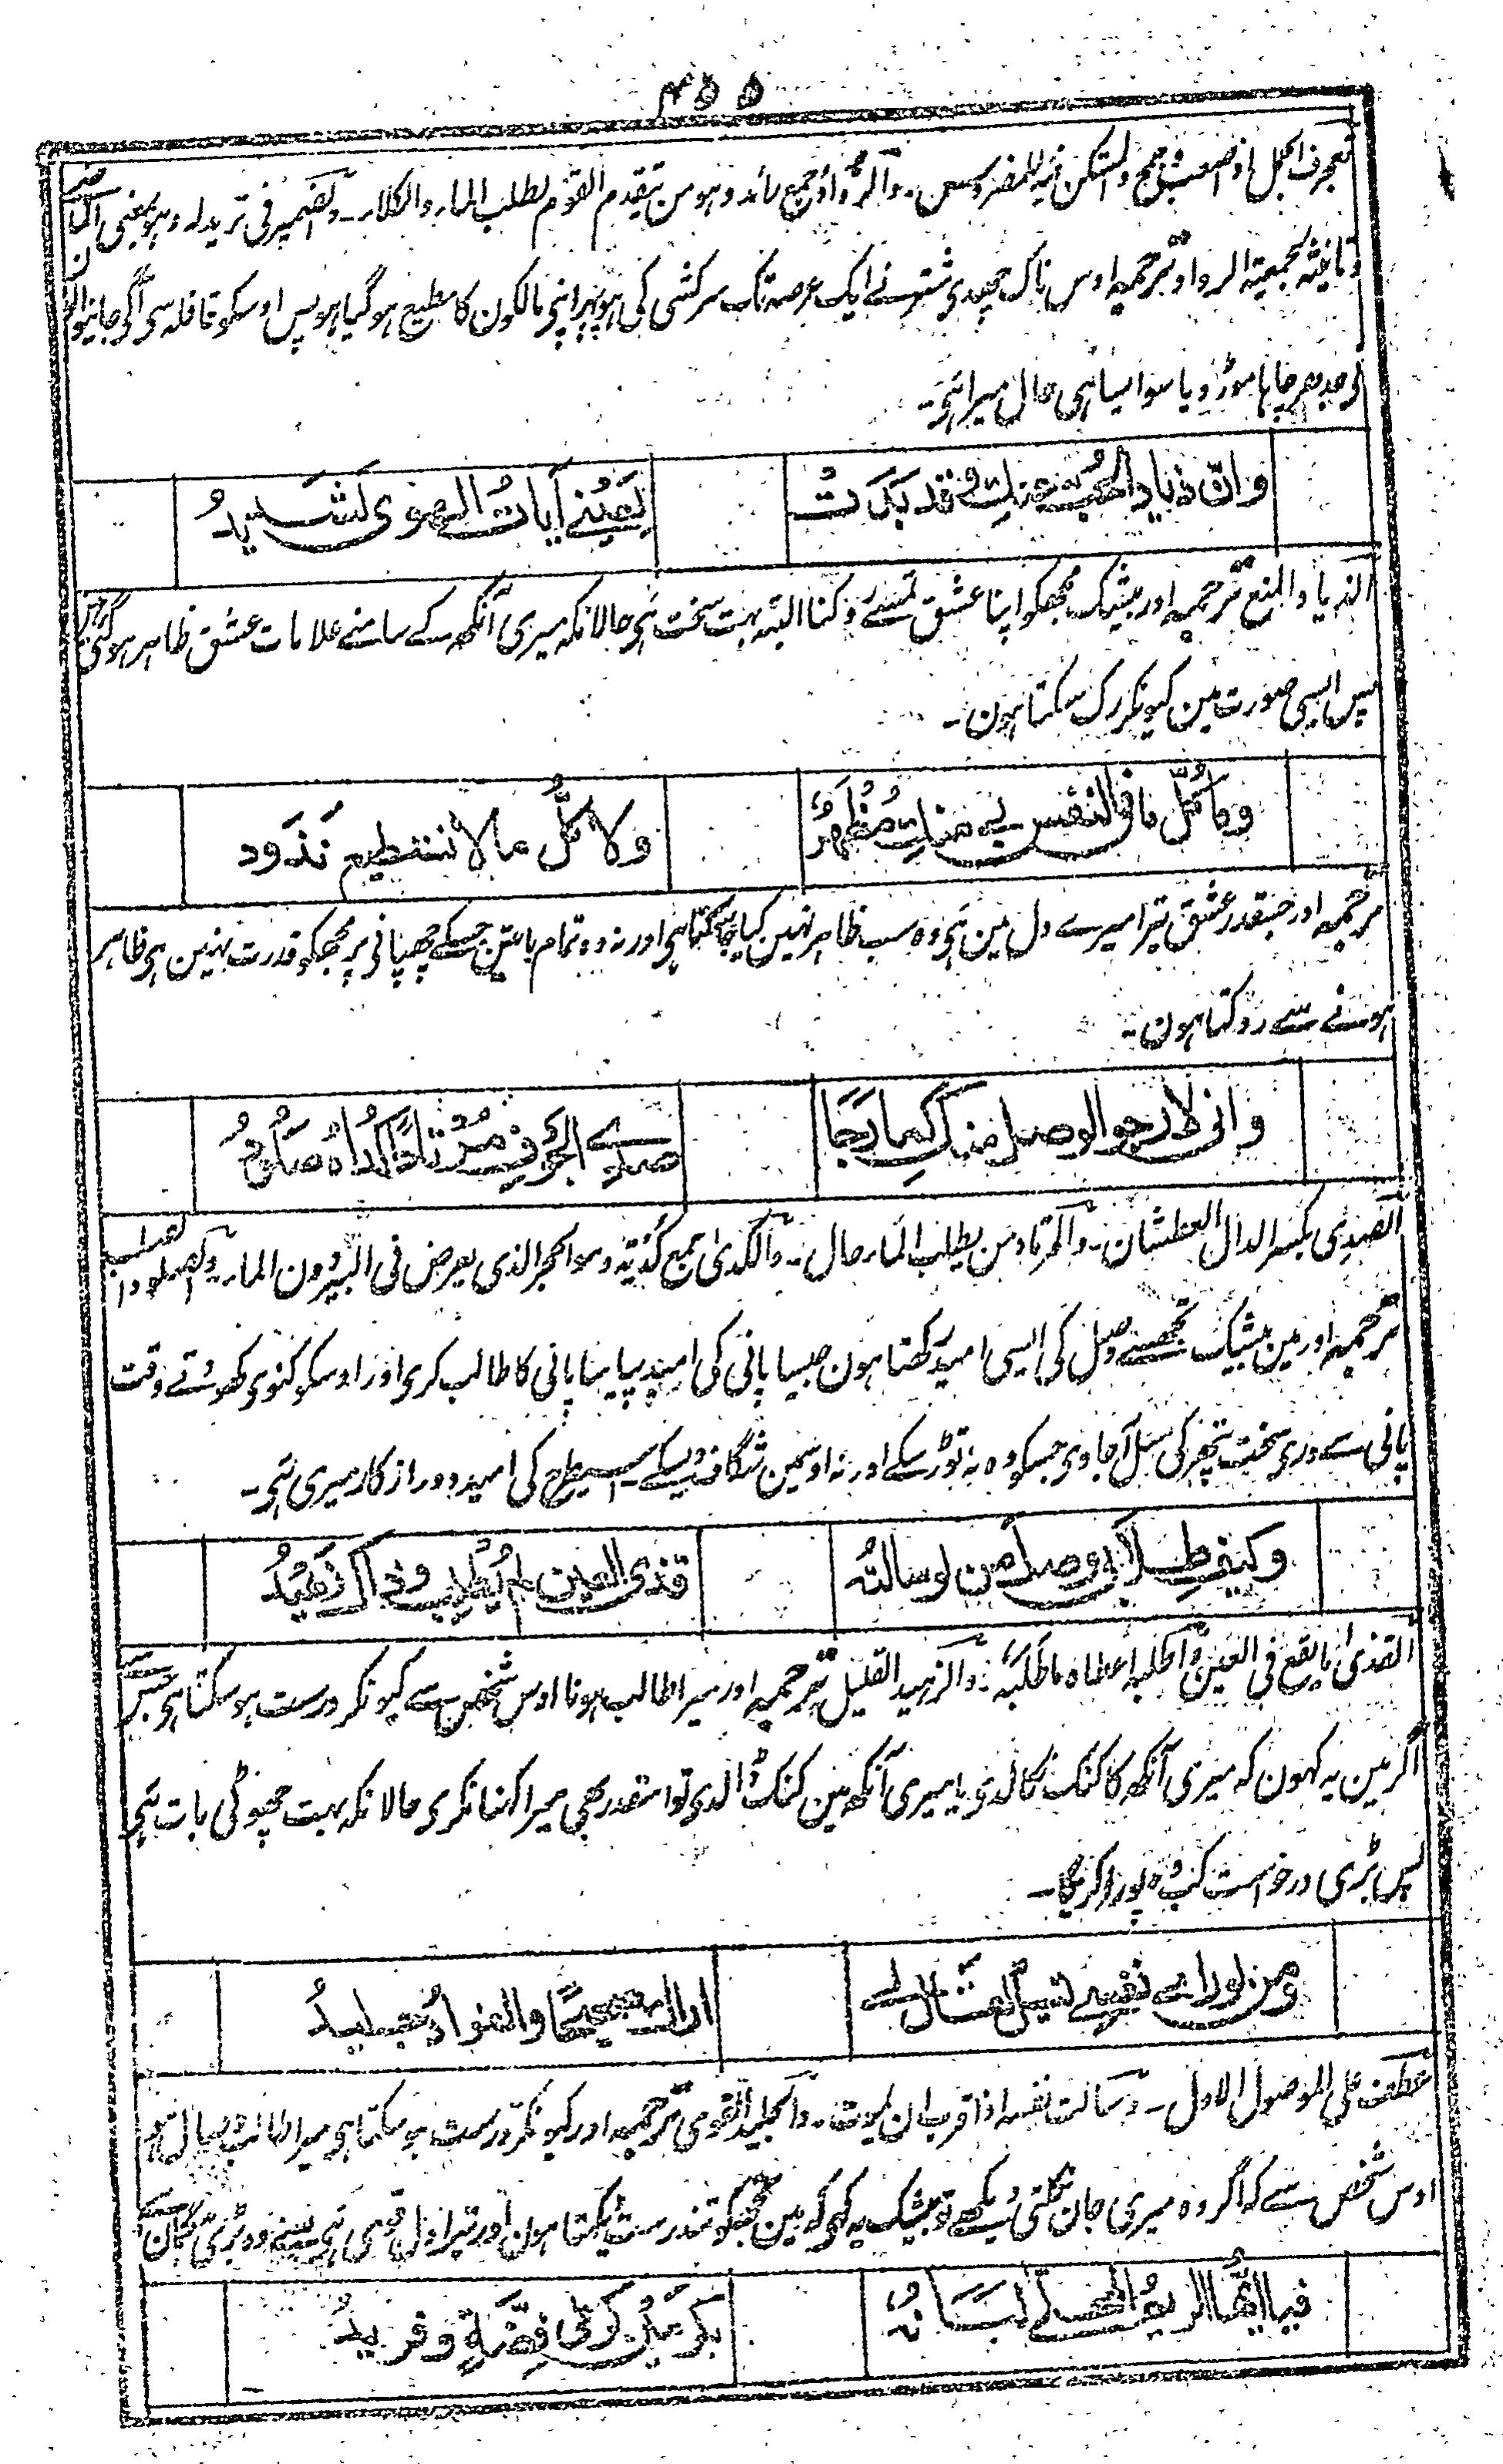 ۴۵۵
والرواد جمع رائد وهو من يتقدم القوم لطلب الماء والكلاء ۔ والضمير فى تريد له وهو بمعنى
ترجمہ اوس ناک چھیدی شتر نے ایک عرصہ تک سرکشی کی ہو پھر اپنی مالکون کا مطیع ہوگیا ہو پس اوسکو قافلہ سی آگی جانیوالی
نی جدھر چاہا موڑ دیا سو ایسا ہی حال میرا ہی۔
وانّ ذياد الحب عنك وقد بدت
لعينى آيات الهوى لشديدُ
الذیاد المنع ترجمہ اور بیشک مجھکو اپنا عشق تمسے روکنا البتہ بہت سخت ہی حالانکہ میری آنکھ کے سامنے علامات عشق ظاہر ہوگئی
پس ایسی صورت مین کیونکر رک سکتا ہون۔
وما كلّ ما فى النفس لى منك مُظهَرٌ
ولا كلُّ ما لا نستطيع نَذَود
ترجمہ اور جسقدر عشق تیرا میرے دل مین ہی وہ سب ظاہر نہین کیا جا سکتا ہی اور نہ وہ تمام باتین جسکے چھپانی پر مجھکو قدرت نہین ہی ظاہر
ہونے سے روکتا ہون۔
وانى لارجو الوصل منك كما رَجَا
صدى الجوف مُرتادًا كُداهُ صَلُودُ
الصدی بکسر الدال العطشان۔ والمرتاد من یطلب الماء حال۔ والکدی جمع کدیۃ وہو الحجر الذی یعرض فی البیر دون الماء۔
ترجمہ اور مین بیشک تجھسے وصل کی ایسی امید رکھتا ہون جیسا پانی کی امید پیاسا پانی کا طالب کری اور اوسکو کنوی کھودتے وقت
پانی سے وری سخت پتھر کی سل آجاوی جسکو وہ نہ توڑ سکے اور نہ اوسمین شگاف دیسکے۔ اسیطرح کی امید دوراز کار میری ہی۔
وكيف طلابى وصل من لو سالتُه
قذى العين لم يُطلِب وذاك زهيدُ
القذی ما یقع فی العین واطلبہ اعطاہ ما طلبہ۔ والزہید القلیل ترجمہ اور میرا طالب ہونا اوس شخص سے کیونکر درست ہو سکتا ہی جس
اگر مین یہ کہون کہ میری آنکھ کا کنک نکالدی یا میری آنکھ مین کنک ڈالدی تو اسقدر بھی میرا کہنا نکری حالانکہ بہت چھوٹی بات ہی
پس بڑی درخواست کب وہ پورا کریگا۔
ومن لو راى نفسى تسيل لقال لى
اراك صحيحًا والفواد جليدُ
عطف علی الموصول الاول۔ وسالت نفسہ اذا قرب ان یموت۔ والجلید القوی ترجمہ اور کیونکر درست ہو سکتا ہی میرا طالب وصال ہو
اوس شخص سے کہ اگر وہ میری جان نکلتی دیکھے تو بیشک یہ کہی کہ مین تجھکو تندرست دیکھتا ہون اور تیرا دل قوی ہی یعنے وہ بڑی
فيا ايّها الريم المحلّى لَبَانُه
بكرمَينِ كرمَى فضّةٍ وفريدُ